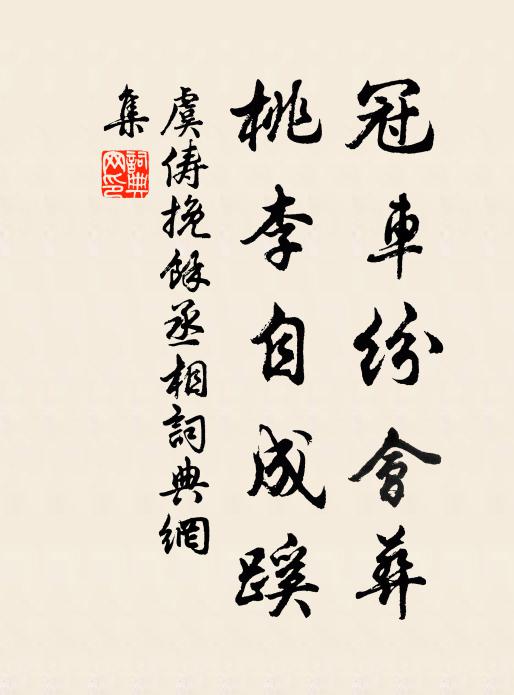 冠車紛會葬
桃李自成蹊
虞儔挽餘丞相詞典網
集
詞典網印